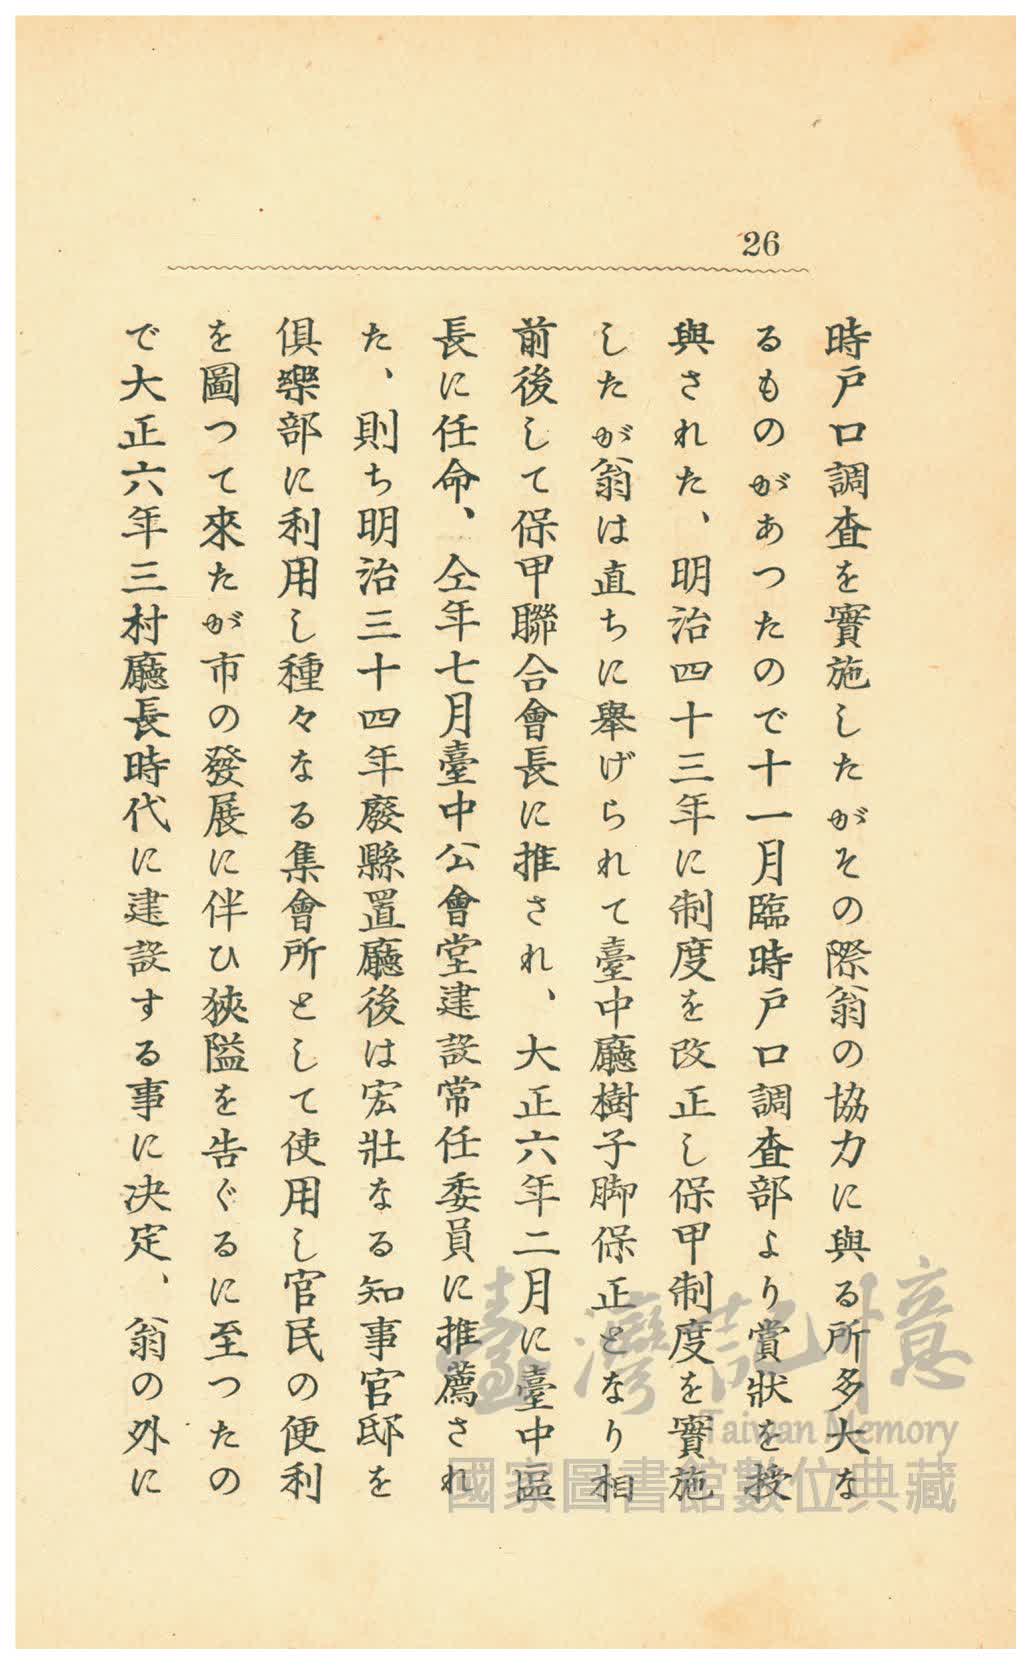 26
時戸口調査を實施したがその際翁の協力に與る所多大な
るものがあつたので十一月臨時戸口調査部より賞狀を授
與された、明治四十三年に制度を改正し保甲制度を實施
したが翁は直ちに舉げられて臺中廳樹子脚保正となり相
前後して保甲聯合會長に推され、大正六年二月に臺中區
長に任命、仝年七月臺中公會堂建設常任委員に推薦され
た、則ち明治三十四年廢縣置廳後は宏壯なる知事官邸を
俱樂部に利用し種々なる集會所として使用し官民の便利
を圖つて來たが市の發展に伴ひ狹隘を告ぐるに至つたの
で大正六年三村廳長時代に建設する事に決定、翁の外に
臺灣記憶
Taiwan Memory
國家圖書館數位典藏